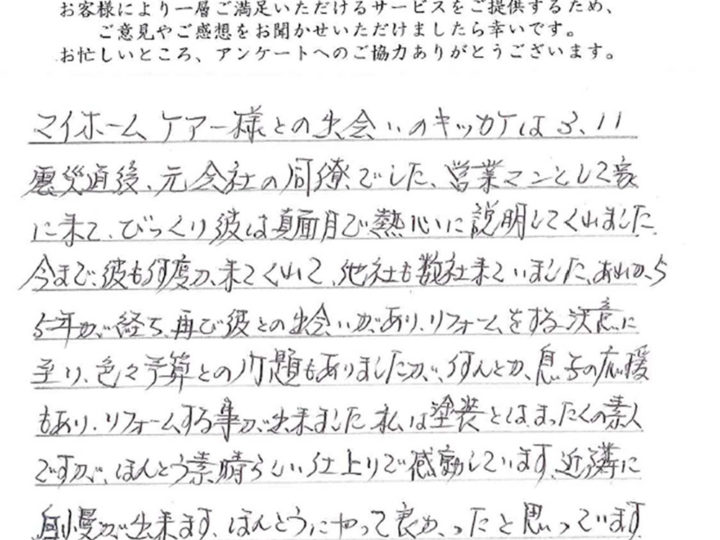 お客様により一層ご満足いただけるサービスをご提供するため、
ご意見やご感想をお聞かせいただけましたら幸いです。
お忙しいところ、アンケートへのご協力ありがとうございます。
マイホームケアー様との出会いのキッカケは3、11
震災直後、元会社の同僚でした、営業マンとして家
に来て、びっくり彼は真面目で熱心に説明してくれました
今まで、彼も何度か、来てくれて、他社も数社来ていました、あれから5
5年が経ち、再び彼との出会いがあり、リフォームをする決意に
至り、色々予算との問題もありましたが、何んとか、息子の応援
もあり、リフォームする事が出来ました 私は塗装とは、まったくの素人
ですが、ほんとう素晴らしい仕上りで感動しています、近隣に
自慢が出来ます、ほんとうにやって良か、ったと思っています